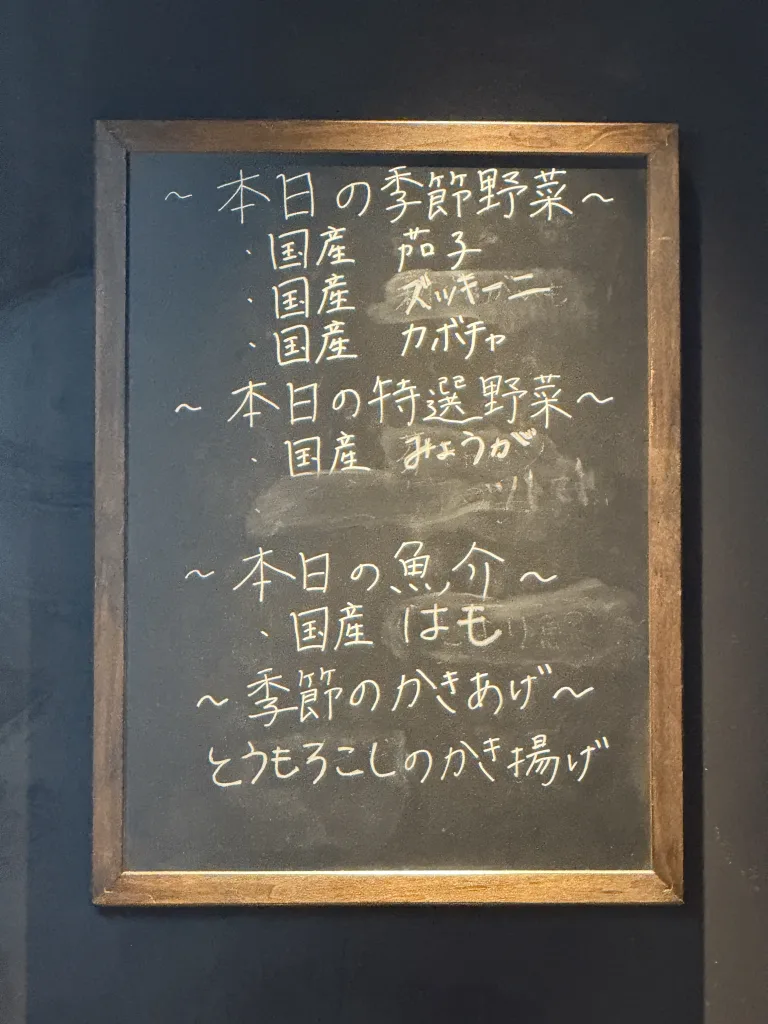 ～本日の季節野菜～
・国産 茄子
・国産 ズッキーニ
・国産 カボチャ
～本日の特選野菜～
・国産 みょうが
～本日の魚介～
・国産 はも
～季節のかきあげ～
とうもろこしのかき揚げ